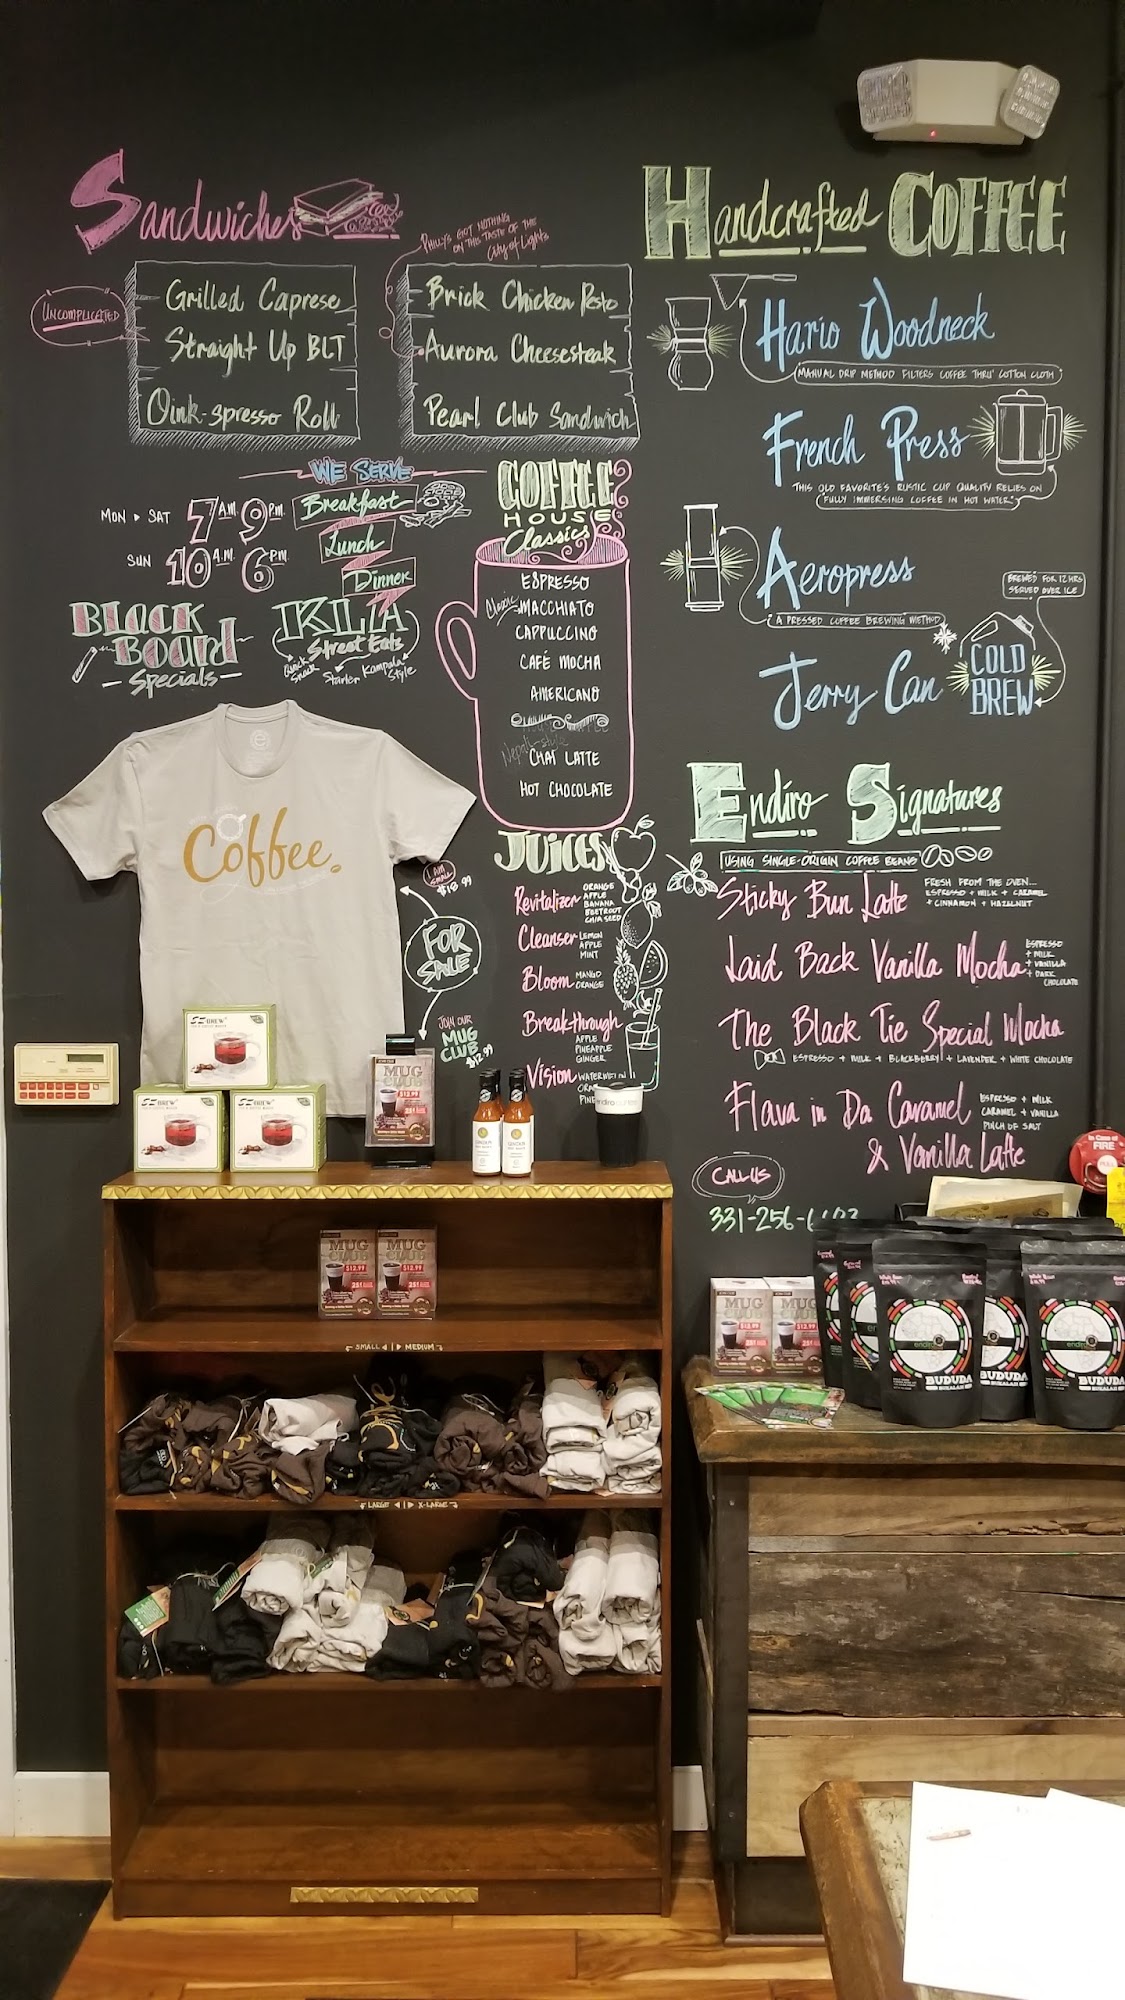 Sandwiches
PHILLY'S GOT NOTHING
ON THIS TASTE OF THE
City of Lights
UNCOMPLICATED
Grilled Caprese
Straight Up BLT
Oink-spresso Roll
Brick Chicken Pesto
Aurora Cheesesteak
Pearl Club Sandwich
WE SERVE
Breakfast
Lunch
Dinner
MON ▸ SAT 7 A.M. 9 P.M.
SUN 10 A.M. 6 P.M.
BLACK
BOARD
Specials
KLA
Street Eats
Quick Snack
Starter
Kampala Style
COFFEE
HOUSE
Classics
ESPRESSO
Classic MACCHIATO
CAPPUCCINO
CAFÉ MOCHA
AMERICANO
Nepali-style
CHAI LATTE
HOT CHOCOLATE
Handcrafted COFFEE
Hario Woodneck
MANUAL DRIP METHOD FILTERS COFFEE THRU' COTTON CLOTH
French Press
THIS OLD FAVORITE'S RUSTIC CUP QUALITY RELIES ON
FULLY IMMERSING COFFEE IN HOT WATER
Aeropress
A PRESSED COFFEE BREWING METHOD
BREWED FOR 12 HRS
SERVED OVER ICE
Jerry Can
COLD
BREW
Endiro Signatures
USING SINGLE-ORIGIN COFFEE BEANS
Sticky Bun Latte
FRESH FROM THE OVEN...
ESPRESSO + MILK + CARAMEL
+ CINNAMON + HAZELNUT
Laid Back Vanilla Mocha
ESPRESSO
+ MILK
+ VANILLA
+ DARK
CHOCOLATE
The Black Tie Special Mocha
ESPRESSO + MILK + BLACKBERRY + LAVENDER + WHITE CHOCOLATE
Flava in Da Caramel
& Vanilla Latte
ESPRESSO + MILK
CARAMEL + VANILLA
PINCH OF SALT
CALL US
331-256-
JUICES
Revitalizer
ORANGE
APPLE
BANANA
BEETROOT
CHIA SEED
Cleanser
LEMON
APPLE
MINT
Bloom
MANGO
ORANGE
Break-through
APPLE
PINEAPPLE
GINGER
Vision
WATERMELON
Coffee.
I AM
SMALL
$18.99
FOR
SALE
JOIN OUR
MUG
CLUB
$12.99
BREW
BREW
BREW
MUG
CLUB
$12.99
25¢
endiro
MUG
CLUB
$12.99
25¢
MUG
CLUB
$12.99
25¢
SMALL ◂ | ▸ MEDIUM
LARGE ◂ | ▸ X-LARGE
MUG
$12.99
MUG
$12.99
In Case of
FIRE
PULL
endiro
BUDUDA
BUKALASI
BUDUDA
BUKALASI
endiro
BUDUDA
BUKALASI